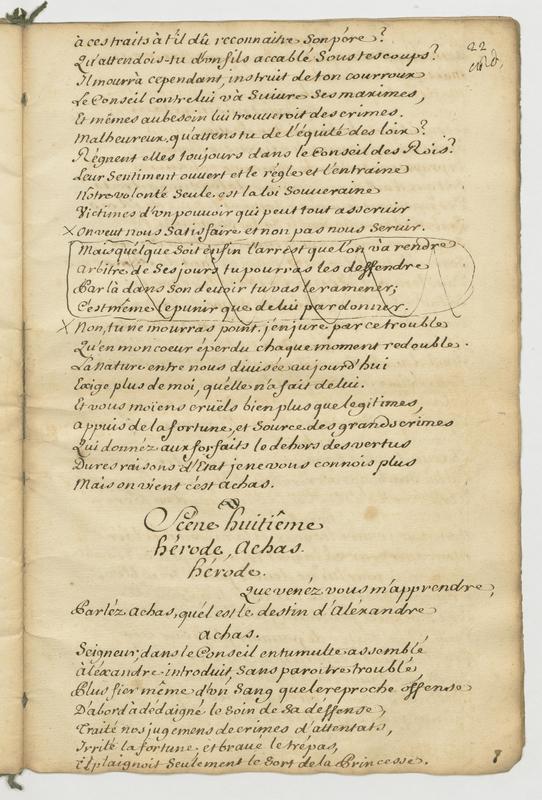 22
à ces traits à t'il dû reconnaitre son pére?
Qu'attendois-tu d'un fils accablé sous tes coups?
Il mourrà cependant, instruit de ton courroux
Le Conseil contre lui và suivre ses maximes,
Et mêmes au besoin lui trouveroit des crimes.
Malheureux, qu'attens tu de l'équité des loix?
Régnent elles toujours dans le Conseil des Rois?
Leur Sentiment ouvert et le régle et l'entraine
Notre volonté Seule est la loi Souveraine
Victimes d'vn pouvoir qui peut tout asservir
x On veut nous Satisfaire et non pas nous Servir.
Mais quélque Soit enfin l'arrèst que l'on và rendre
arbitre de Ses jours tu pourras les deffendre
Par là dans Son devoir tu vas le ramener;
C'est même le punir que de lui pardonner.
x Non, tu ne mourras point. j'en jure par ce trouble
Qu'en mon coeur éperdu chaque moment redouble.
La Nature entre nous divisée aujourd'hui
Exige plus de moi, qu'elle n'a fait de lui.
Et vous moïens cruëls bien plus que legitimes,
appuis de la fortune, et Source des grands crimes
Qui donnéz aux forfaits le dehors des vertus
Dures raisons d'Etat je ne vous connois plus
Mais on vient c'est Achas.
Scêne huitiême
hérode, Achas.
hérode.
Que venéz vous m'apprendre,
Parléz Achas, quél est le destin d'Aléxandre
Achas.
Seigneur, dans le Conseil en tumulte assemblé
àléxandre introduit Sans paroitre troublé
Plus fier même d'vn Sang que le reproche offense
D'abord à dédaigné le Soin de Sa deffense,
Traité nos jugemens de crimes d'attentats,
Irrité la fortune, et bravé le trépas,
Il plaignoit Seulement le Sort de la Princesse.